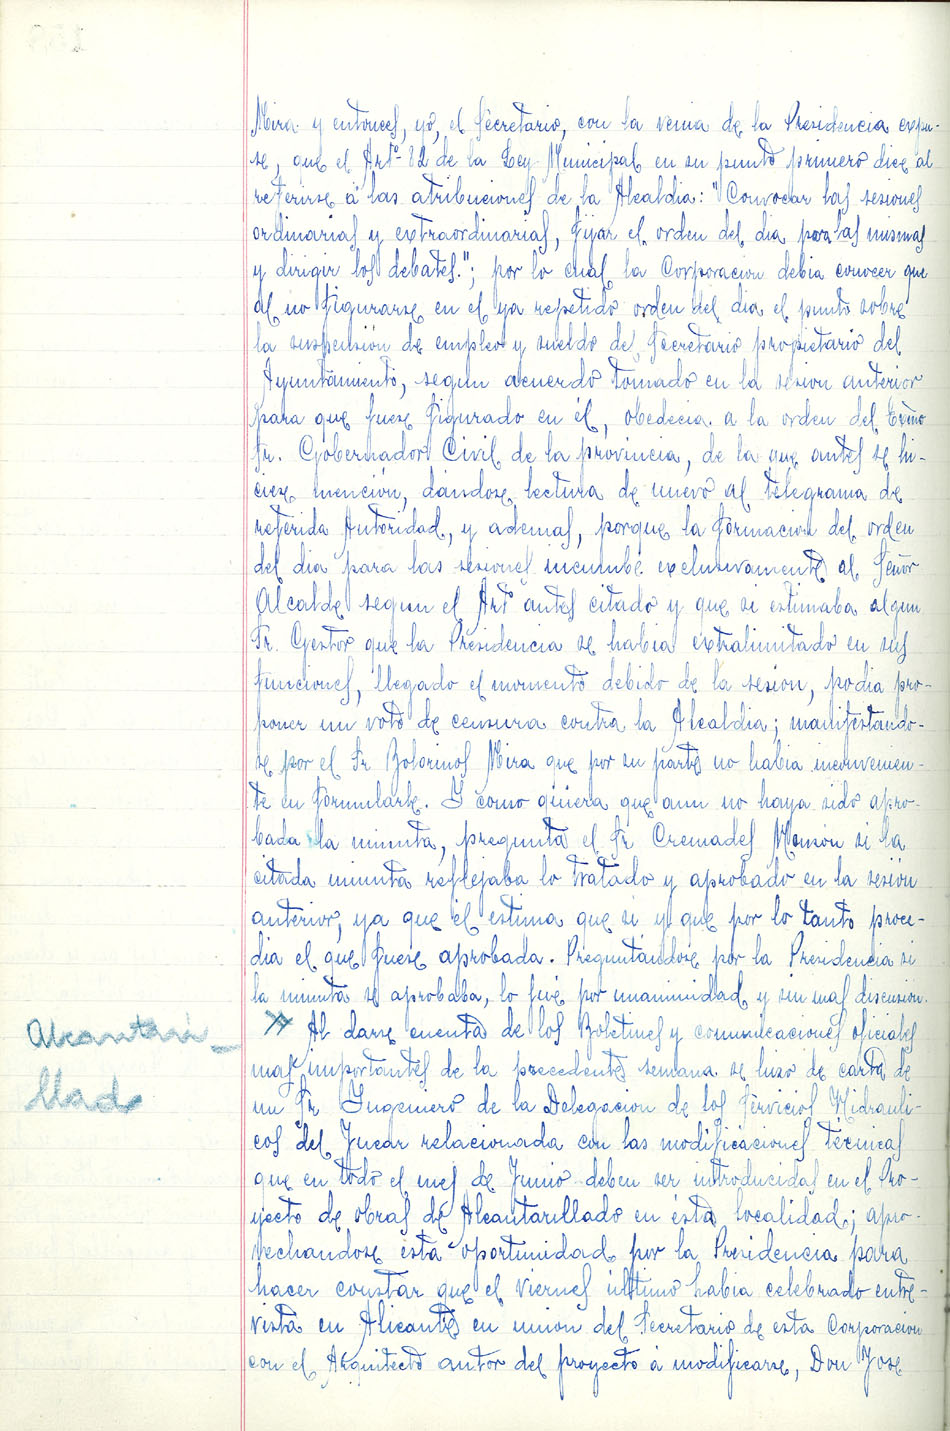 Mira y entonces, yó, el Secretario, con la venia de la Presidencia expu-
se, que el Artº 82 de la Ley Municipal en su punto primero dice al
referirse á las atribuciones de la Alcaldia: "Convocar las sesiones
ordinarias y extraordinarias, fijar el orden del dia para las mismas
y dirigir los debates."; por lo cual la Corporacion debia conocer que
al no figurarse en el ya repetido orden del dia el punto sobre
la suspensión de empleo y sueldo del Secretario propietario del
Ayuntamiento, segun acuerdo tomado en la sesion anterior
para que fuese figurado en él, obedecia a la orden del Excmo
Sr. Gobernador Civil de la provincia, de la que antes se hi-
ciese mención, dandose lectura de nuevo al telegrama de
referida Autoridad, y ademas, porque la formacion del orden
del dia para las sesiones incumbe exclusivamente al Señor
Alcalde segun el Artº antes citado y que si estimaba algun
Sr. Gestor que la Presidencia se habia extralimitado en sus
funciones, llegado el momento debido de la sesion, podia pro-
poner un voto de censura contra la Alcaldia; manifestando-
se por el Sr Bolorinos Mira que por su parte no habia inconvenien-
te en formularle. Y como quiera que aun no haya sido apro-
bada la minuta, pregunta el Sr Cremades Monzón si la
citada minuta reflejaba lo tratado y aprobado en la sesión
anterior, ya que él estima que si y que por lo tanto proce-
dia el que fuese aprobada. Preguntandose por la Presidencia si
la minuta se aprobaba, lo fué por unanimidad y sin mas discusion.
Alcantari-
llado
Al darse cuenta de los Boletines y comunicaciones oficiales
mas importantes de la precedente semana se hizo de carta de
un Sr Ingeniero de la Delegacion de los Servicios Hidrauli-
cos del Jucar relacionada con las modificaciones técnicas
que en todo el mes de Junio deben ser introducidas en el Pro-
yecto de obras de Alcantarillado en ésta localidad; apro-
vechandose esta oportunidad por la Presidencia para
hacer constar que el viernes último habia celebrado entre-
vista en Alicante en union del Secretario de esta Corporacion
con el Arquitecto autor del proyecto á modificarse, Don Jose